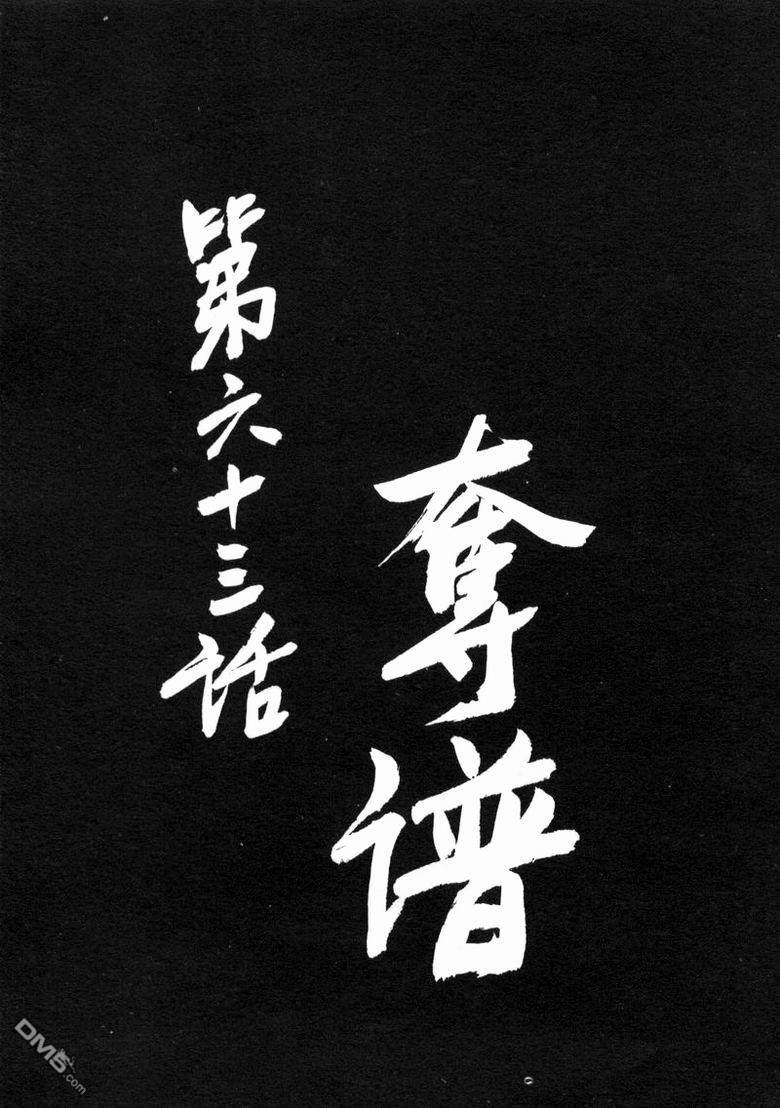 第六十三话
奪谱
DM5.com